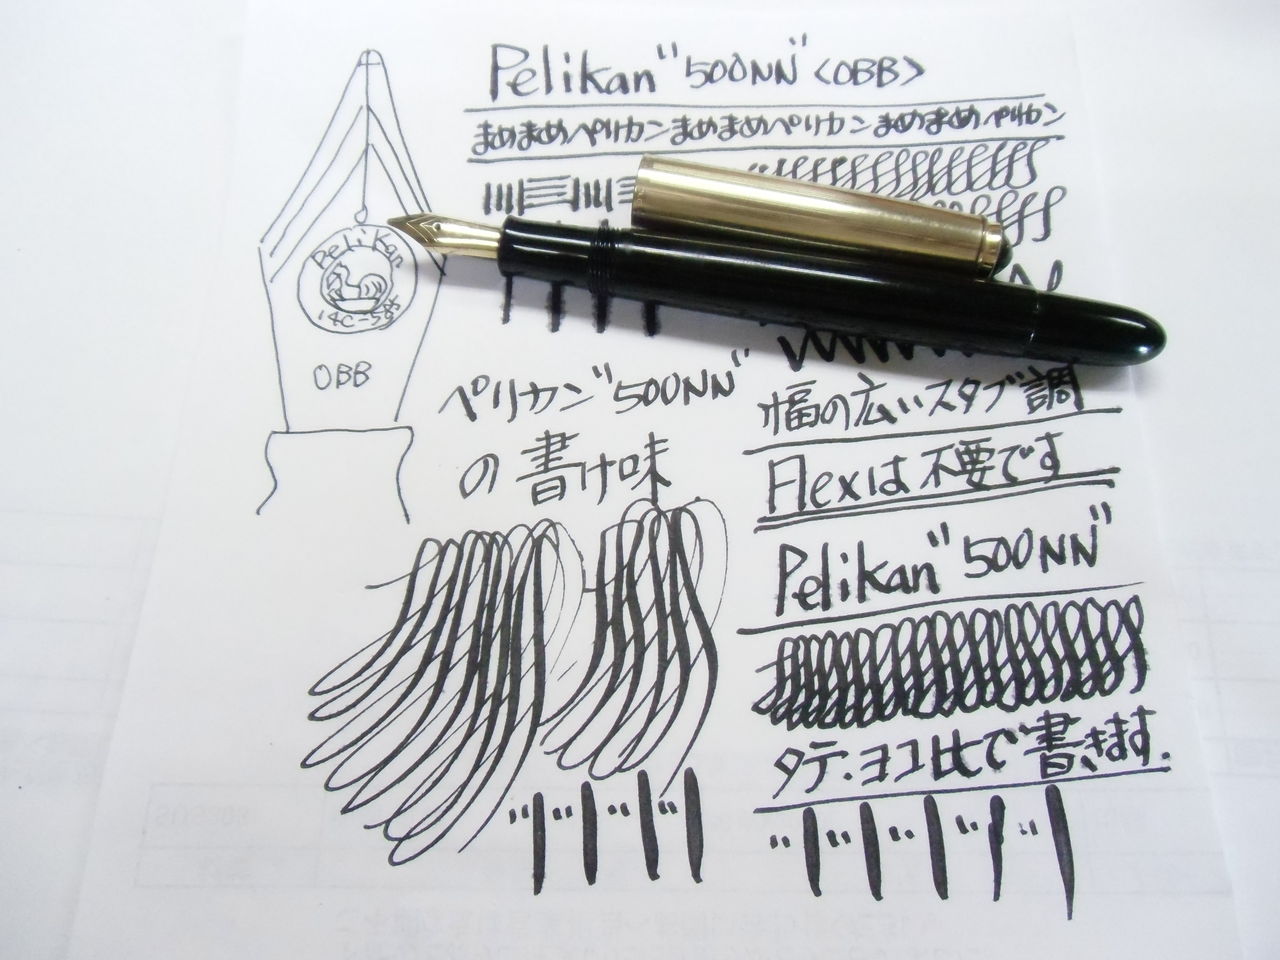 Pelikan "500NN" <OBB>
まめまめペリカンまめまめペリカンまめまめペリカン
Pelikan
14C-585
OBB
ペリカン"500NN"
の書け味
幅の広いスタブ調
Flexは不要です
Pelikan "500NN"
タテ・ヨコ比で書きます.